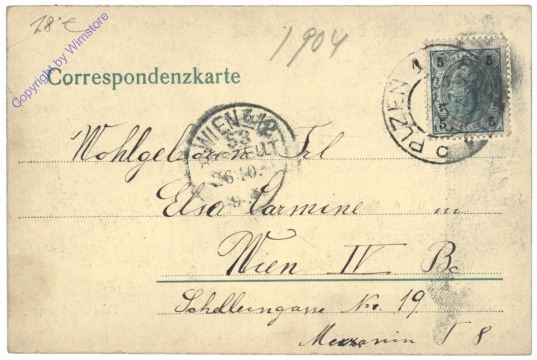 18.-€
1904
Copyright by Wimstore
Correspondenzkarte
5 5
5 5
PLZEN 1
WIEN 4/2
53
BESTELLT
26.10.
9
Wohlgeboren Frl
Elsa Carmine in
Wien IV B.
Schelleingasse No. 19
Mezzanin T 8